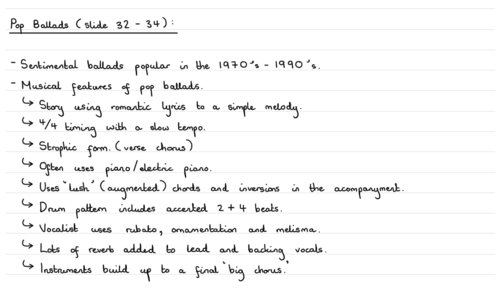 Pop Ballads (slide 32 - 34):
- Sentimental ballads popular in the 1970's - 1990's.
- Musical features of pop ballads.
↳ Story using romantic lyrics to a simple melody.
↳ 4/4 timing with a slow tempo.
↳ Strophic form. (verse chorus)
↳ Often uses piano/electric piano.
↳ Uses 'lush' (augmented) chords and inversions in the acompanyment.
↳ Drum pattern includes accented 2 + 4 beats.
↳ Vocalist uses rubato, ornamentation and melisma.
↳ Lots of reverb added to lead and backing vocals.
↳ Instruments build up to a final 'big chorus.'